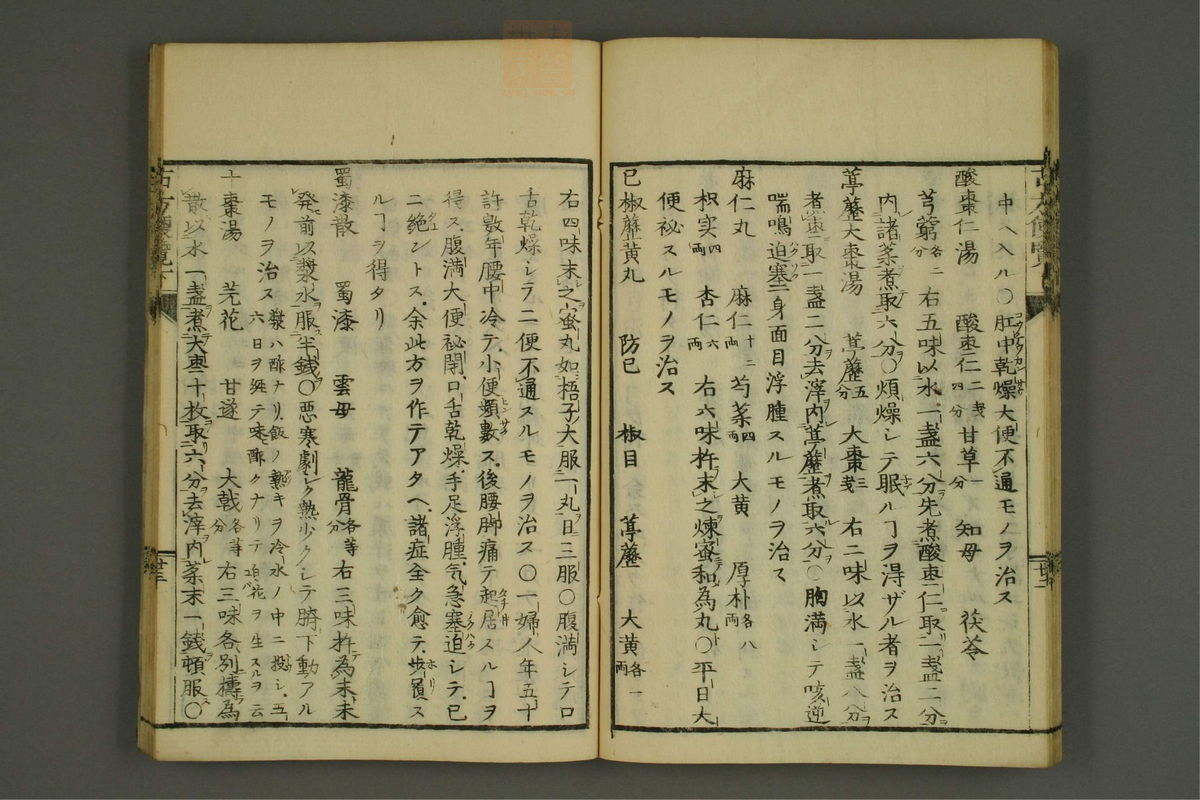 中ヘ入ル〇肛中乾燥大便不通モノヲ治ス
酸棗仁湯 酸棗仁二戔四分 甘草一分 知母 茯苓
芎藭各二分 右五味以水一盞六分先煮酸棗仁取一盞二分
内諸薬煮取六分〇煩燥シテ眠ルヿヲ得ザル者ヲ治ス
葶藶大棗湯 葶藶五分 大棗三戔 右二味以水一盞八分
煮棗取一盞二分去滓内葶藶煮取六分〇胸満シテ咳逆
喘鳴迫塞一身面目浮腫スルモノヲ治ス
麻仁丸 麻仁十二両 芍薬四両 大黄 厚朴各八両
枳实四両 杏仁六両 右六味杵末之煉蜜和為丸〇平日大
便祕スルモノヲ治ス
已椒藶黄丸 防已 椒目 葶藶 大黄各一両
右四味末之蜜丸如梧子大服一丸日三服〇腹満シテ口
舌乾燥シテ二便不通スルモノヲ治ス〇一婦人年五十
許数年腰中冷テ小便頻數ス後腰脚痛テ起居スルヿヲ
得ス腹満大便祕閉口舌乾燥手足浮腫気急塞迫シテ已
ニ絶ントス余此方ヲ作テアタヘ諸症全ク愈テ歩履ス
ルヿヲ得タリ
蜀漆散 蜀漆 雲母 龍骨各等分 右三味杵為末未
発前以漿水服半銭〇悪寒劇ク熱少クシテ臍下動アル
モノヲ治ス 漿ハ酢ナリ飯ノ熱キヲ冷水ノ中ニ投シ五六日ヲ経テ味酢クナリテ白花ヲ生スルヲ云
十棗湯 芫花 甘遂 大戟各等分 右三味各別擣為
散以水一盞煮大棗十枚取六分去滓内薬末一銭頓服〇
古方便覧下
廿二
古方便覧下
廿三